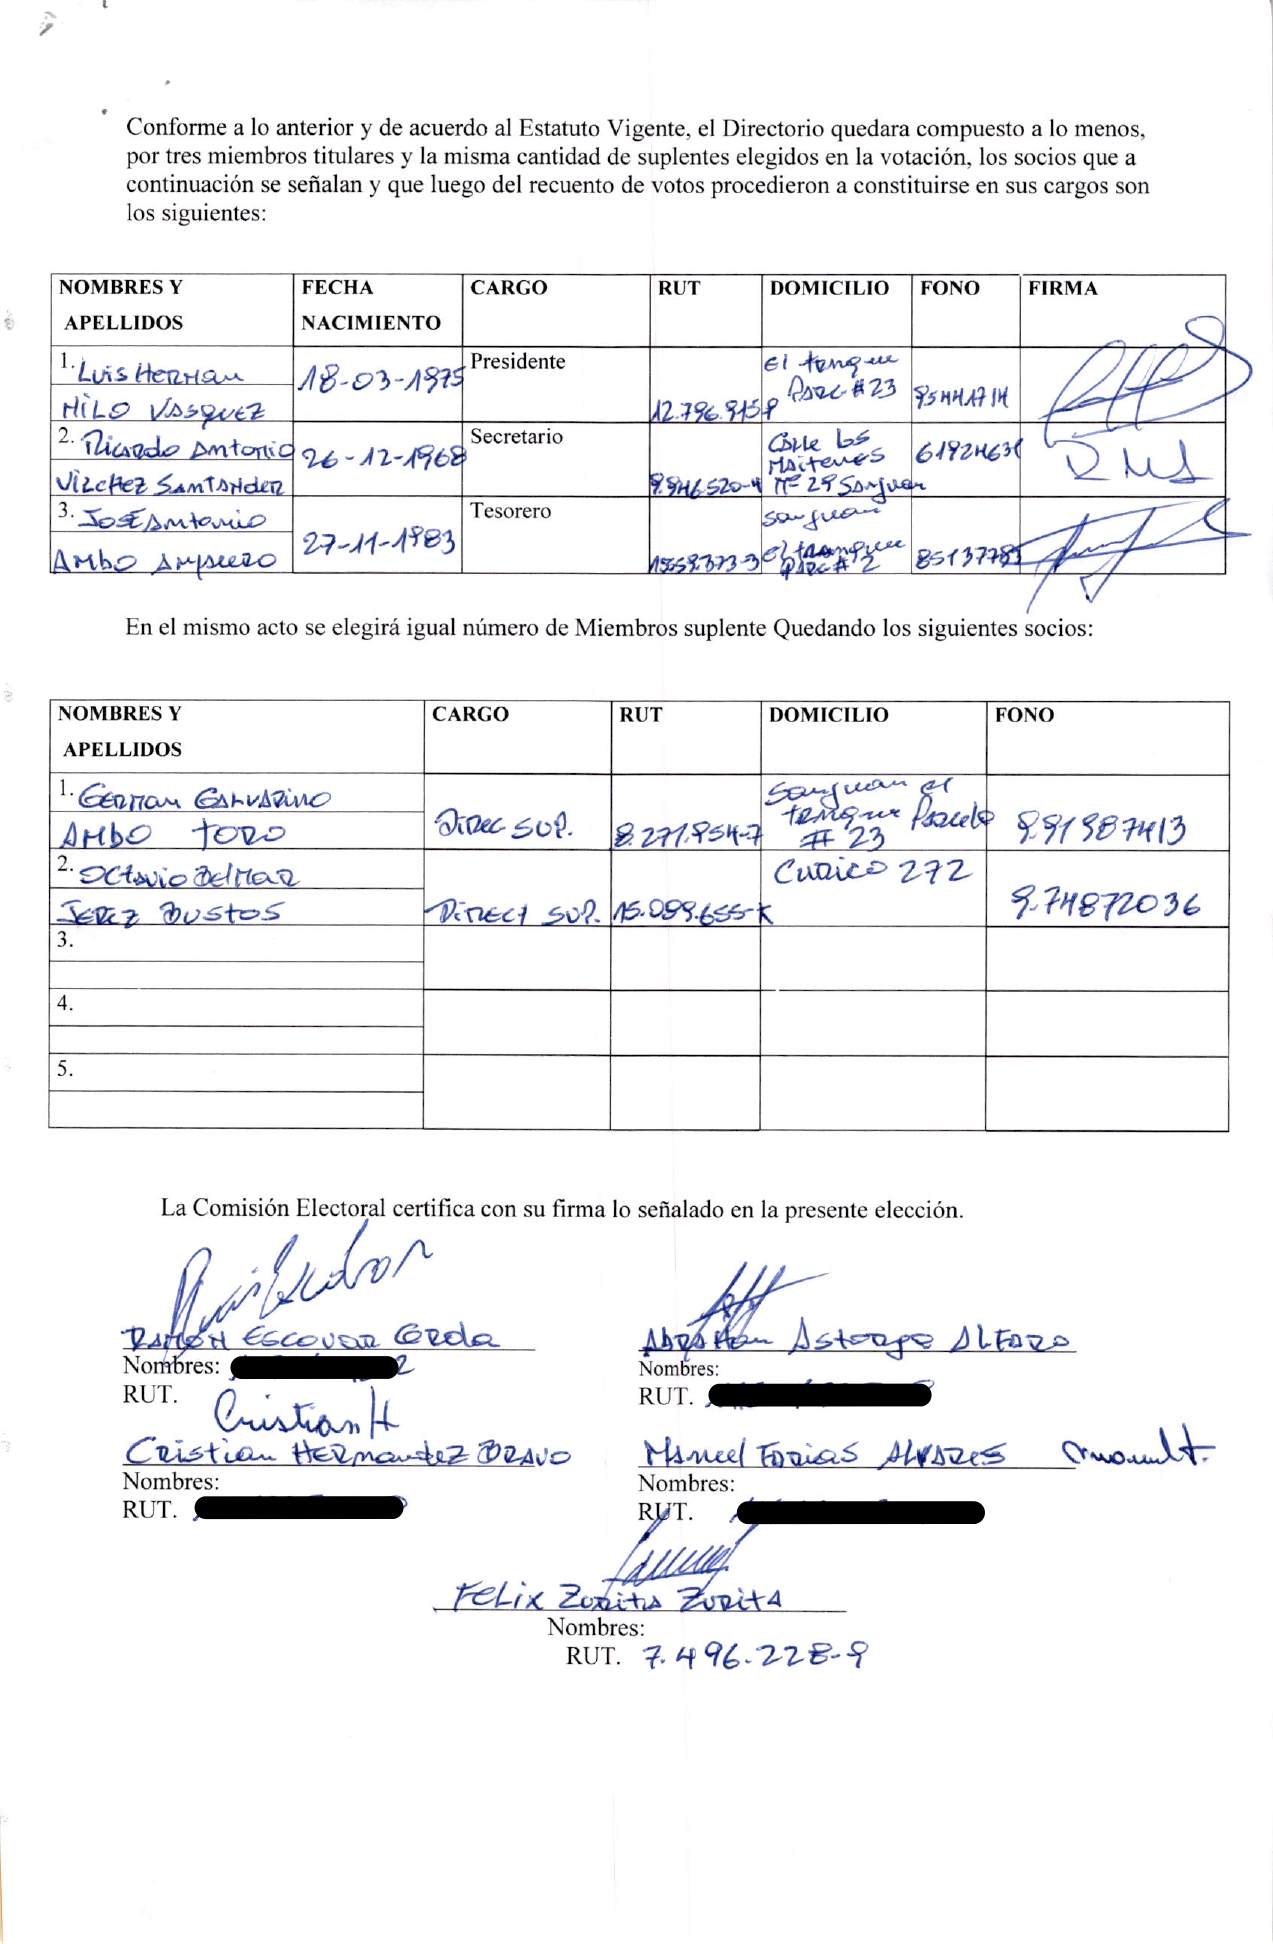 Conforme a lo anterior y de acuerdo al Estatuto Vigente, el Directorio quedara compuesto a lo menos,
por tres miembros titulares y la misma cantidad de suplentes elegidos en la votación, los socios que a
continuación se señalan y que luego del recuento de votos procedieron a constituirse en sus cargos son
los siguientes:
NOMBRES Y APELLIDOS FECHA NACIMIENTO CARGO RUT DOMICILIO FONO FIRMA
1. Luis Hernan 18-03-1975 Presidente El tenque
Milo Vasquez 12.796.915-8 Parc #23 95441714
2. Ricardo Antonio 26-12-1968 Secretario Calle los Maitenes 61924631
Vilchez Santander 9.946.520-4 Nº 29 Sanjuan
3. José Antonio 27-11-1983 Tesorero Sanjuan
Ambo Ampuero El tranque Parc # 2 85137783
En el mismo acto se elegirá igual número de Miembros suplente Quedando los siguientes socios:
NOMBRES Y APELLIDOS CARGO RUT DOMICILIO FONO
1. German Galvarino Sanjuan el
Ambo Toro Direc SUP. 8.271.954-7 tenque Parcela # 23 9.91987413
2. Octavio Belmar Curico 272
Jerez Bustos Direct SUP. 15.099.655-K 9.74872036
3.
4.
5.
La Comisión Electoral certifica con su firma lo señalado en la presente elección.
Ramón Escovar Cerda Abraham Astorga Alfaro
Nombres: Nombres:
RUT. RUT.
Cristian H
Cristian Hernandez Bravo Manuel Farias Alvares
Nombres: Nombres:
RUT. RUT.
Felix Zurita Zurita
Nombres:
RUT. 7.496.228-9